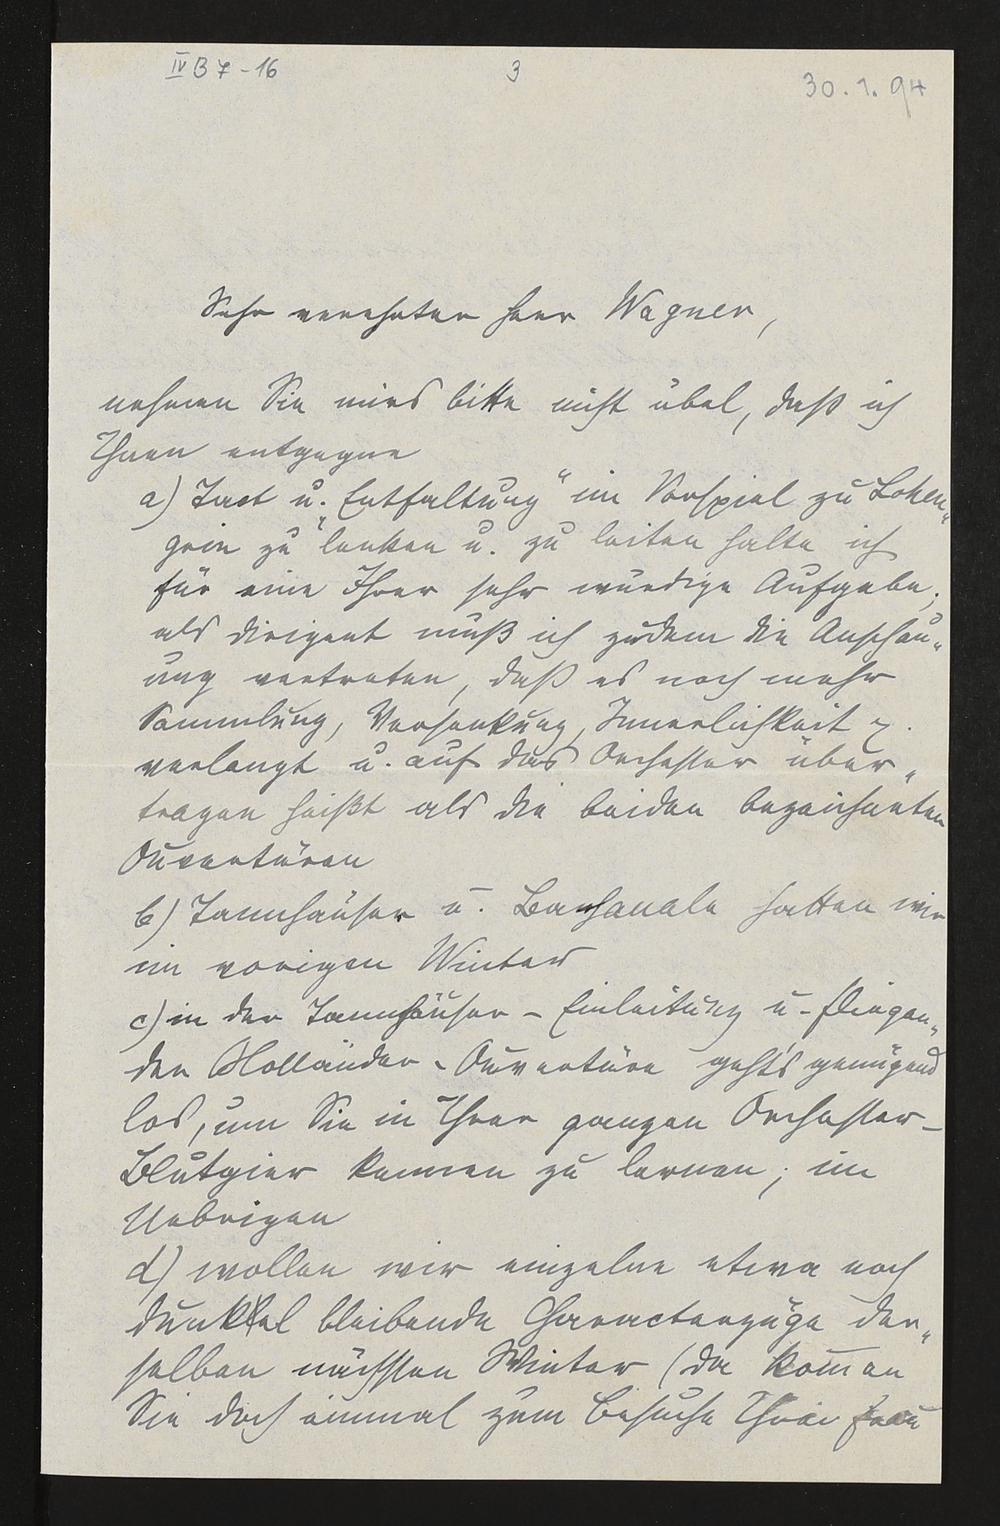 IV B 7 - 16
3
30. 1. 94
Sehr verehrter Herr Wagner,
nehmen Sie mirs bitte nicht übel, daß ich
Ihnen entgegne
a) Tact u. „Entfaltung“ im Vorspiel zu Lohen„
grin zu lenken u. zu leiten halte ich
für eine Ihrer sehr würdige Aufgabe;
als Dirigent muß ich zudem die Anschau„
ung vertreten, daß es noch mehr
Sammlung, Versenkung, Innerlichkeit
verlangt u. auf das Orchester über„
tragen heißt als die beiden bezeichneten
Ouvertüren
b) Tannhäuser u. Bachanale hatten wir
im vorigen Winter
c) in der Tannhäuser - Einleitung u. fliegen„
den Holländer - Ouvertüre geht's genügend
los, um Sie in Ihrer ganzen Orchester-
Blutgier kennen zu lernen; im
Uebrigen
d) wollen wir einzelne etwa noch
dunkel bleibende Characterzüge der„
selben nächsten Winter (da kom̄en
Sie doch einmal zum Besuche Ihrer Frau